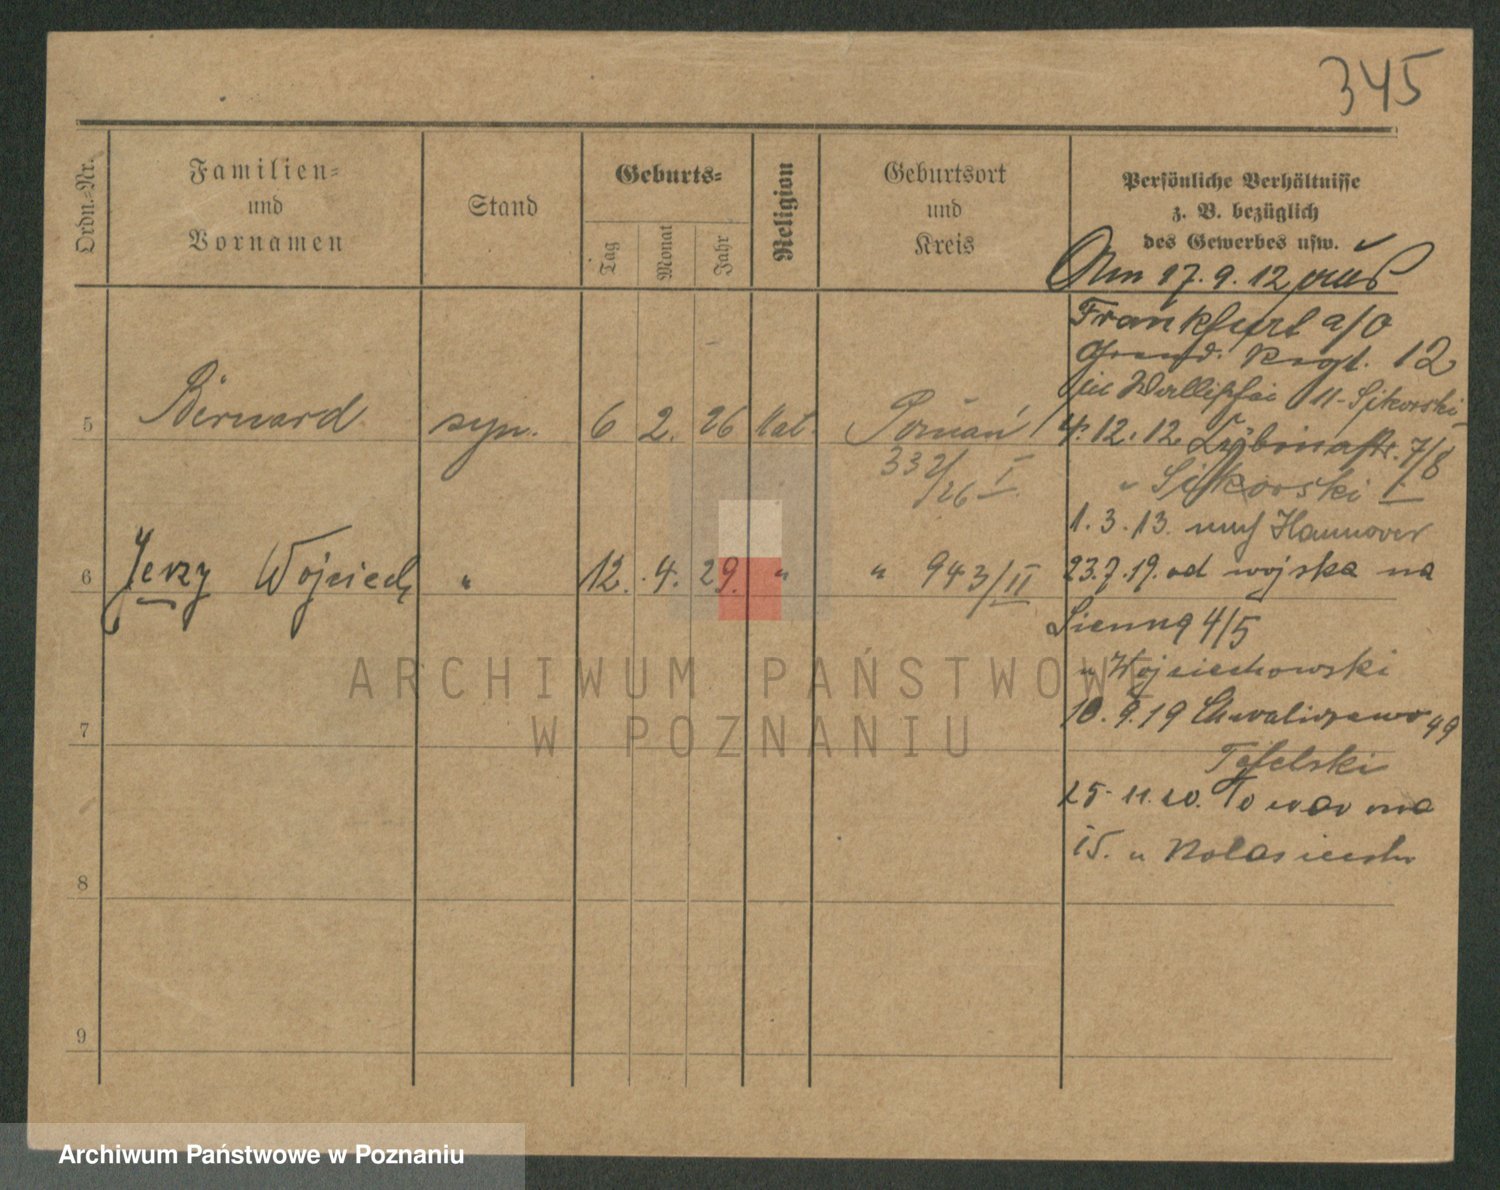 345
Ordn.-Nr.
Familien-
und
Vornamen
Stand
Geburts-
Tag
Monat
Jahr
Religion
Geburtsort
und
Kreis
Persönliche Verhältnisse
z. B. bezüglich
des Gewerbes usw.
Am 17.9.12 aus
Frankfurt a/O
Regt. 12
11 - Sikorski
5 Bernard syn. 6 2. 26 kat. Poznań
332/26 I
4.12.12. 7/8
" Sikorski I
1.3.13. nach Hannover
6 Jerzy Wojciech " 12. 4. 29. " " 943/II
23.7.19. od wojska na
Sienna 4/5
u Wojciechowski
7
10.9.19 Chwaliszewo 49
Tefelski
25.11.20. Towarowa
15. u
8
9
ARCHIWUM PAŃSTWOWE
W POZNANIU
Archiwum Państwowe w Poznaniu